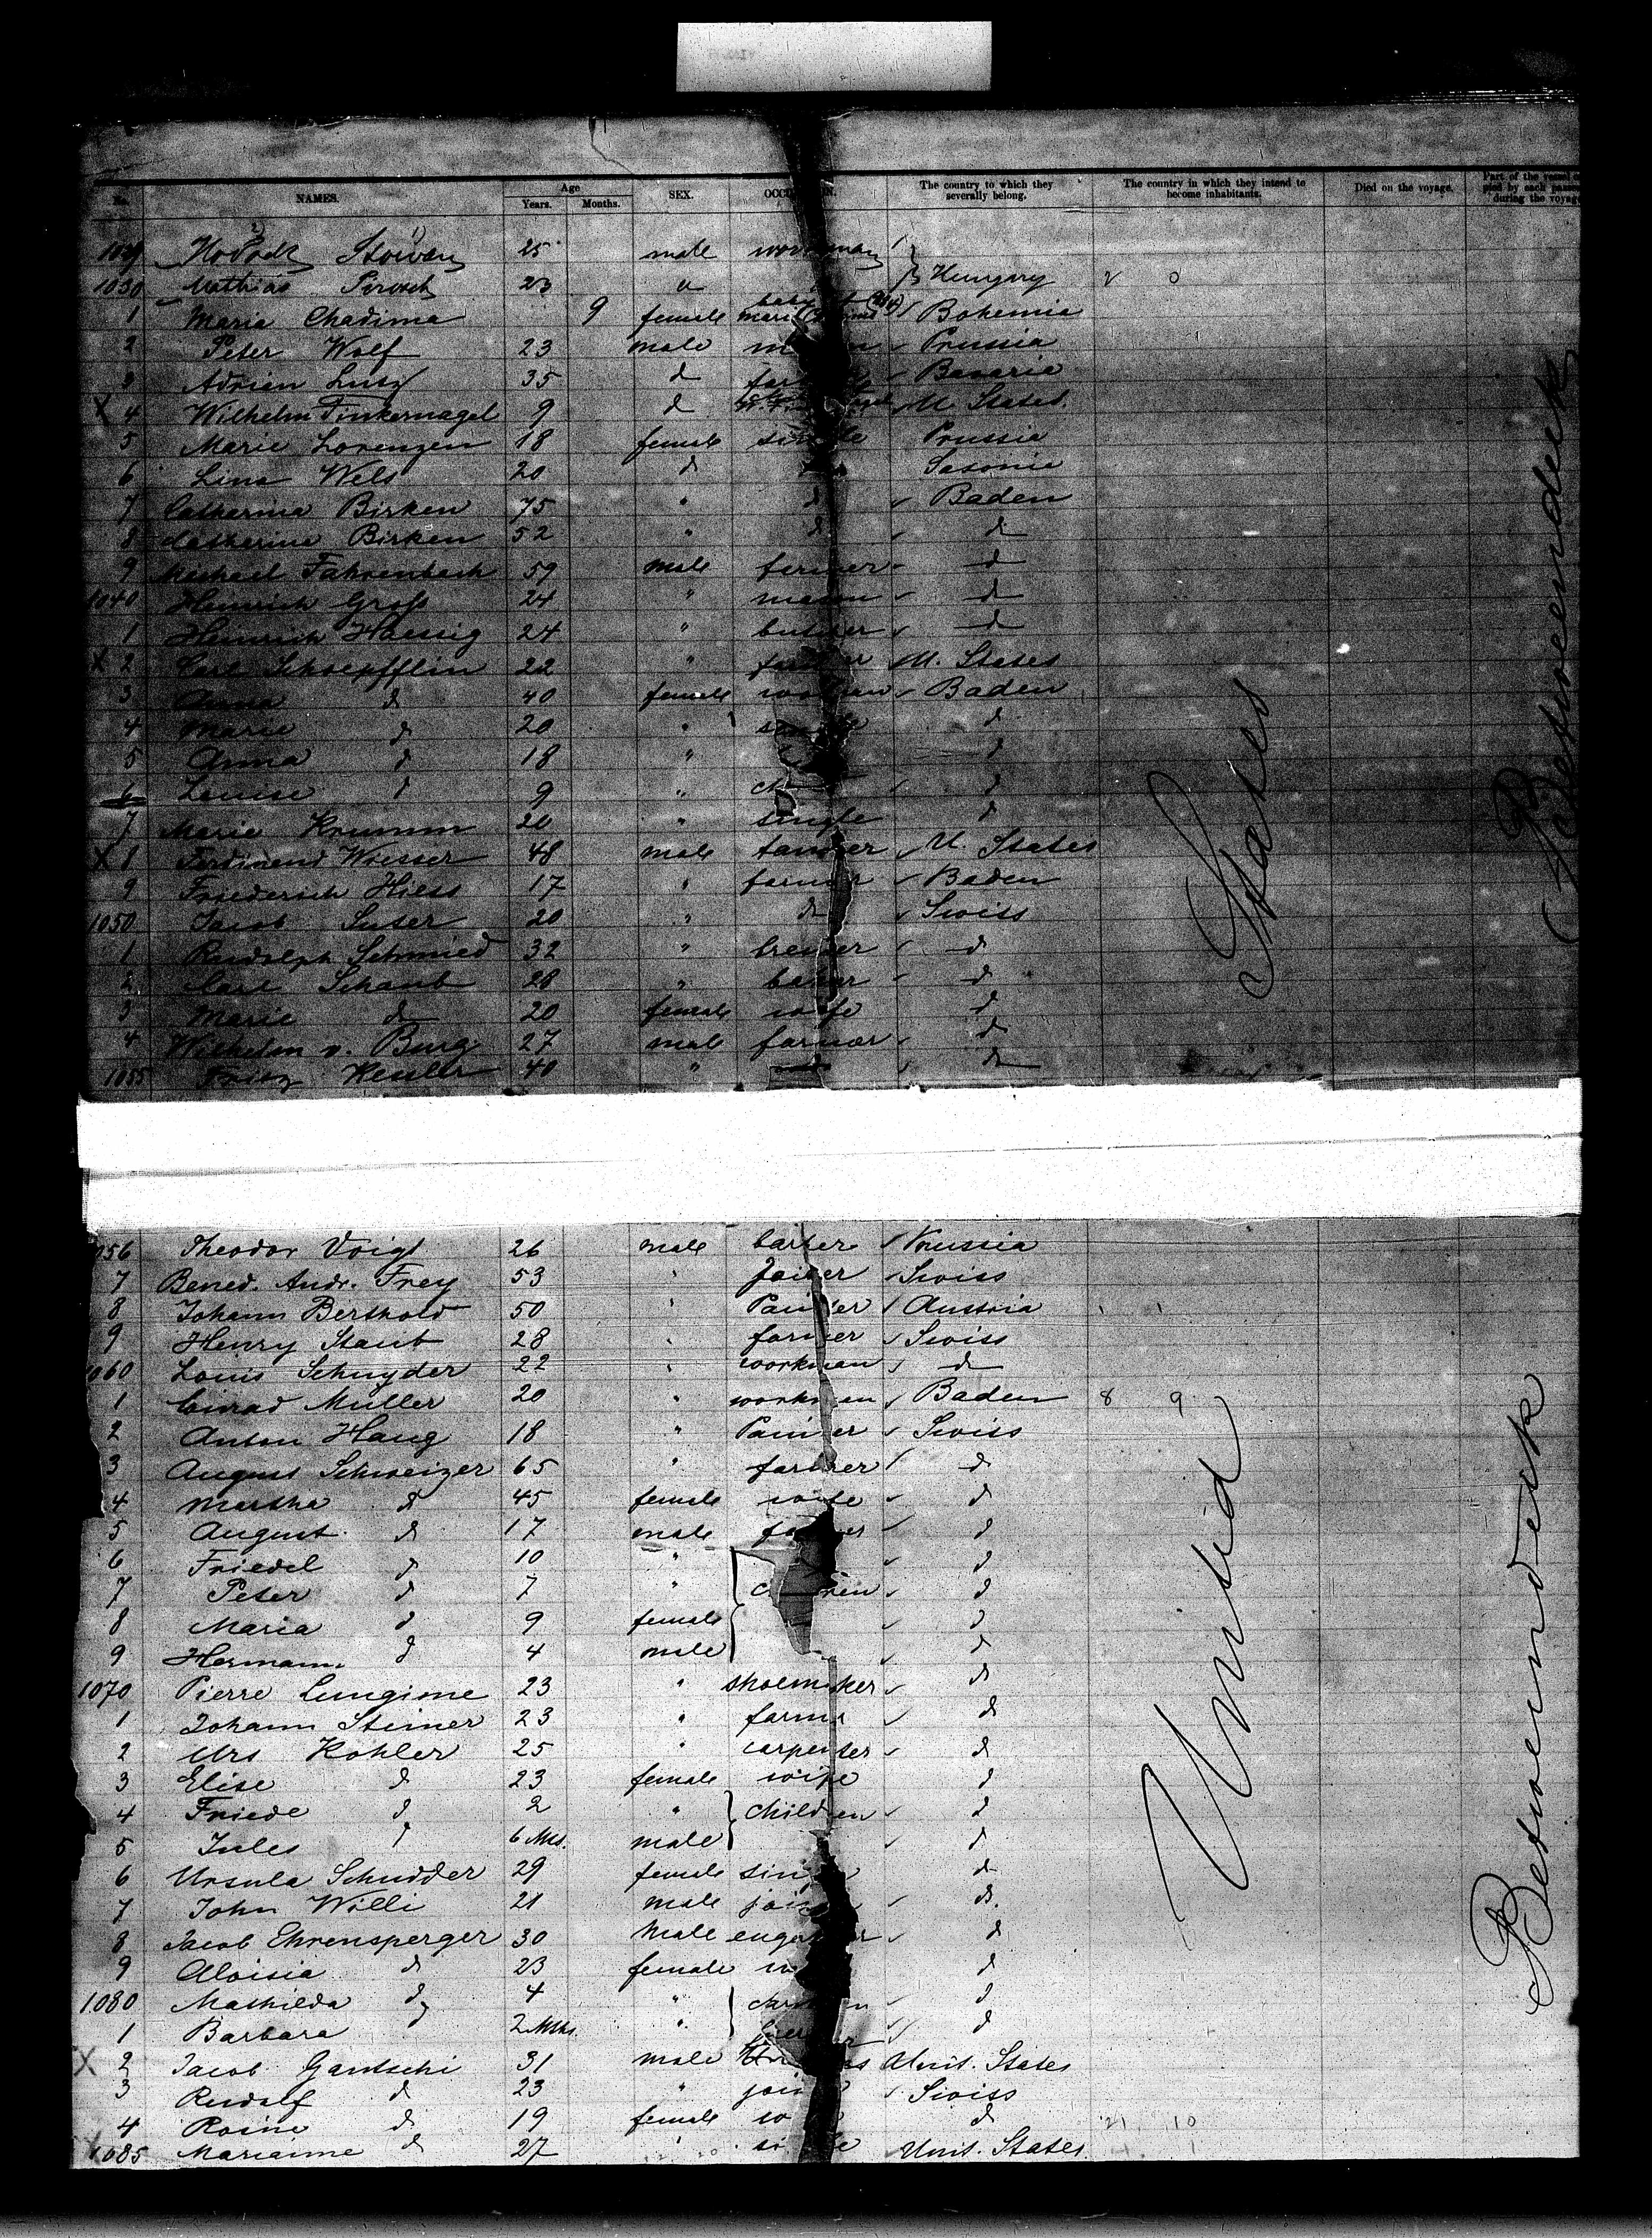 No. NAMES. Age Years. Months. SEX. The country to which they severally belong. The country in which they intend to become inhabitants. Died on the voyage. Part of the vessel during the voyage
25 male
1030 Mathias 23 " Hungary
1 Maria Chadima 9 female Bohemia
2 Peter Wolf 23 male Prussia
3 Adrian Lutz 35 d Bavaria
X 4 Wilhelm Finkernagel 9 d U. States.
5 Marie Lorenzen 18 female single Prussia
6 Lina Wels 20 d Saxonie
7 Catharina Birken 75 " d Baden
8 Catharina Birken 52 " d d
9 Michael Fahrenbach 59 male farmer d
1040 Heinrich Gross 24 " mason d
1 Heinrich Haessig 24 " butcher d
X 2 Carl Schoepfflin 22 " farmer U. States
3 Anna d 40 female woman Baden
4 Marie d 20 " single d
5 Anna d 18 " d
6 Louise d 9 " d
7 Marie Krumm 20 " single d
X Ferdinand Wiesser 48 male U. States
9 Friederich Hiess 17 " farmer Baden
1050 Jacob Suter 20 " d Swiss
1 Rudolph Schmied 32 " d
2 Carl Schaub 28 " d
3 Marie d 20 female wife d
4 Wilhelm v. Burg 27 male farmer d
1055 Fritz Kessler 40 " d
States
Betweendeck
056 Theodor Voigt 26 male barber Prussia
7 Bened. Andr. Frey 53 " Joiner Swiss
8 Johann Berthold 50 " Painter Austria
9 Henry Staub 28 " farmer Swiss
1060 Louis Schnyder 22 " workman d
1 Conrad Müller 20 " workmen Baden 8 9
2 Anton Haug 18 " Painter Swiss
3 August Schweizer 65 " farmer d
4 Martha d 45 female wife d
5 August d 17 male farmer d
6 Friedel d 10 " d
7 Peter d 7 " children d
8 Maria d 9 female d
9 Hermann d 4 male d
1070 Pierre Lungime 23 " shoemaker d
1 Johann Steiner 23 " farmer d
2 Urs Kohler 25 " carpenter d
3 Elise d 23 female wife d
4 Friede d 2 " children d
5 Jules d 6 Mts. male d
6 Ursula Schudder 29 female single d
7 John Willi 21 male joiner d.
8 Jacob Ehrensperger 30 Male d
9 Aloisia d 23 female d
1080 Mathilda d 4 " children d
1 Barbara 2 Mts. " d
X 2 Jacob Gantschi 31 male Unit. States
3 Rudolf d 23 " joiner Swiss
4 Rosine d 19 female d 21 10
1085 Marianne d 27 " single Unit. States.
United
Betweendeck